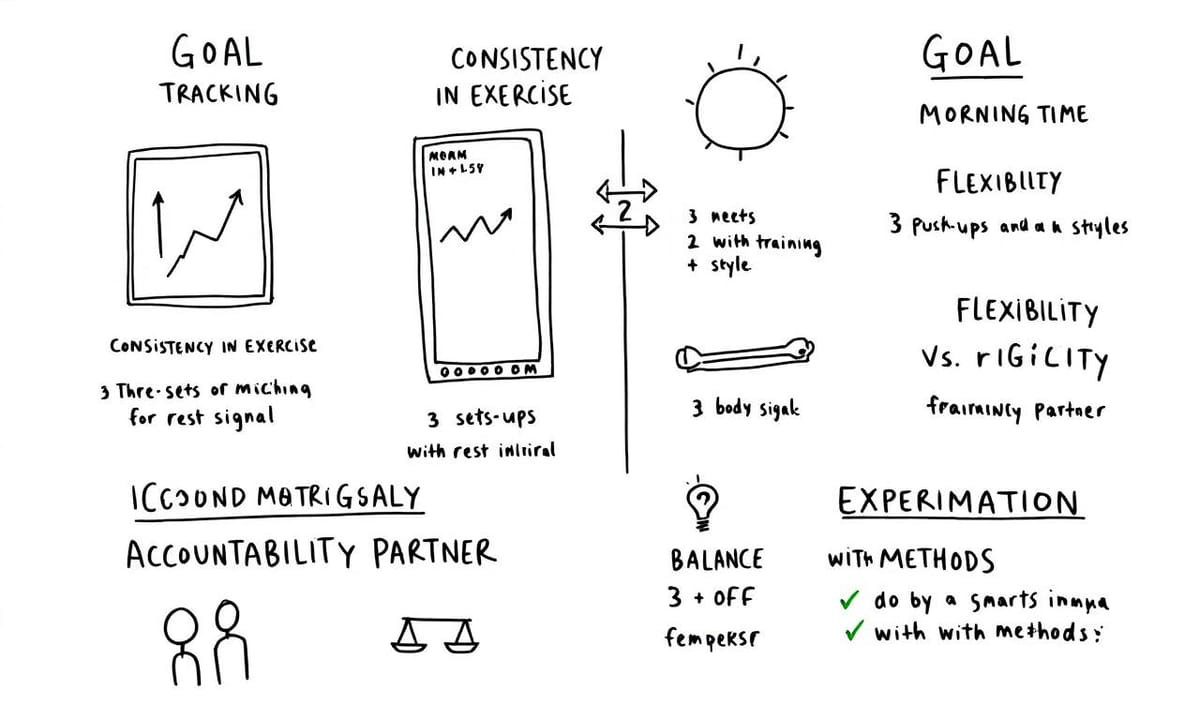 GOAL
TRACKING
CONSISTENCY IN EXERCISE
3 Thre-sets of miching
for rest signal
CONSISTENCY
IN EXERCISE
MORM
IN + L5Y
OOOOO OM
3 sets-ups
with rest
2
3 neets
2 with training
+ style
3 body sigak
GOAL
MORNING TIME
FLEXIBLITY
3 Push-ups and a h styles
FLEXIBILITY
Vs. rIGiCITY
Partner
ICCOOND MATRIGSALY
ACCOUNTABILITY PARTNER
?
BALANCE
3 + OFF
fempeksr
EXPERIMATION
with METHODS
✓ do by a smarts
✓ with with methods: